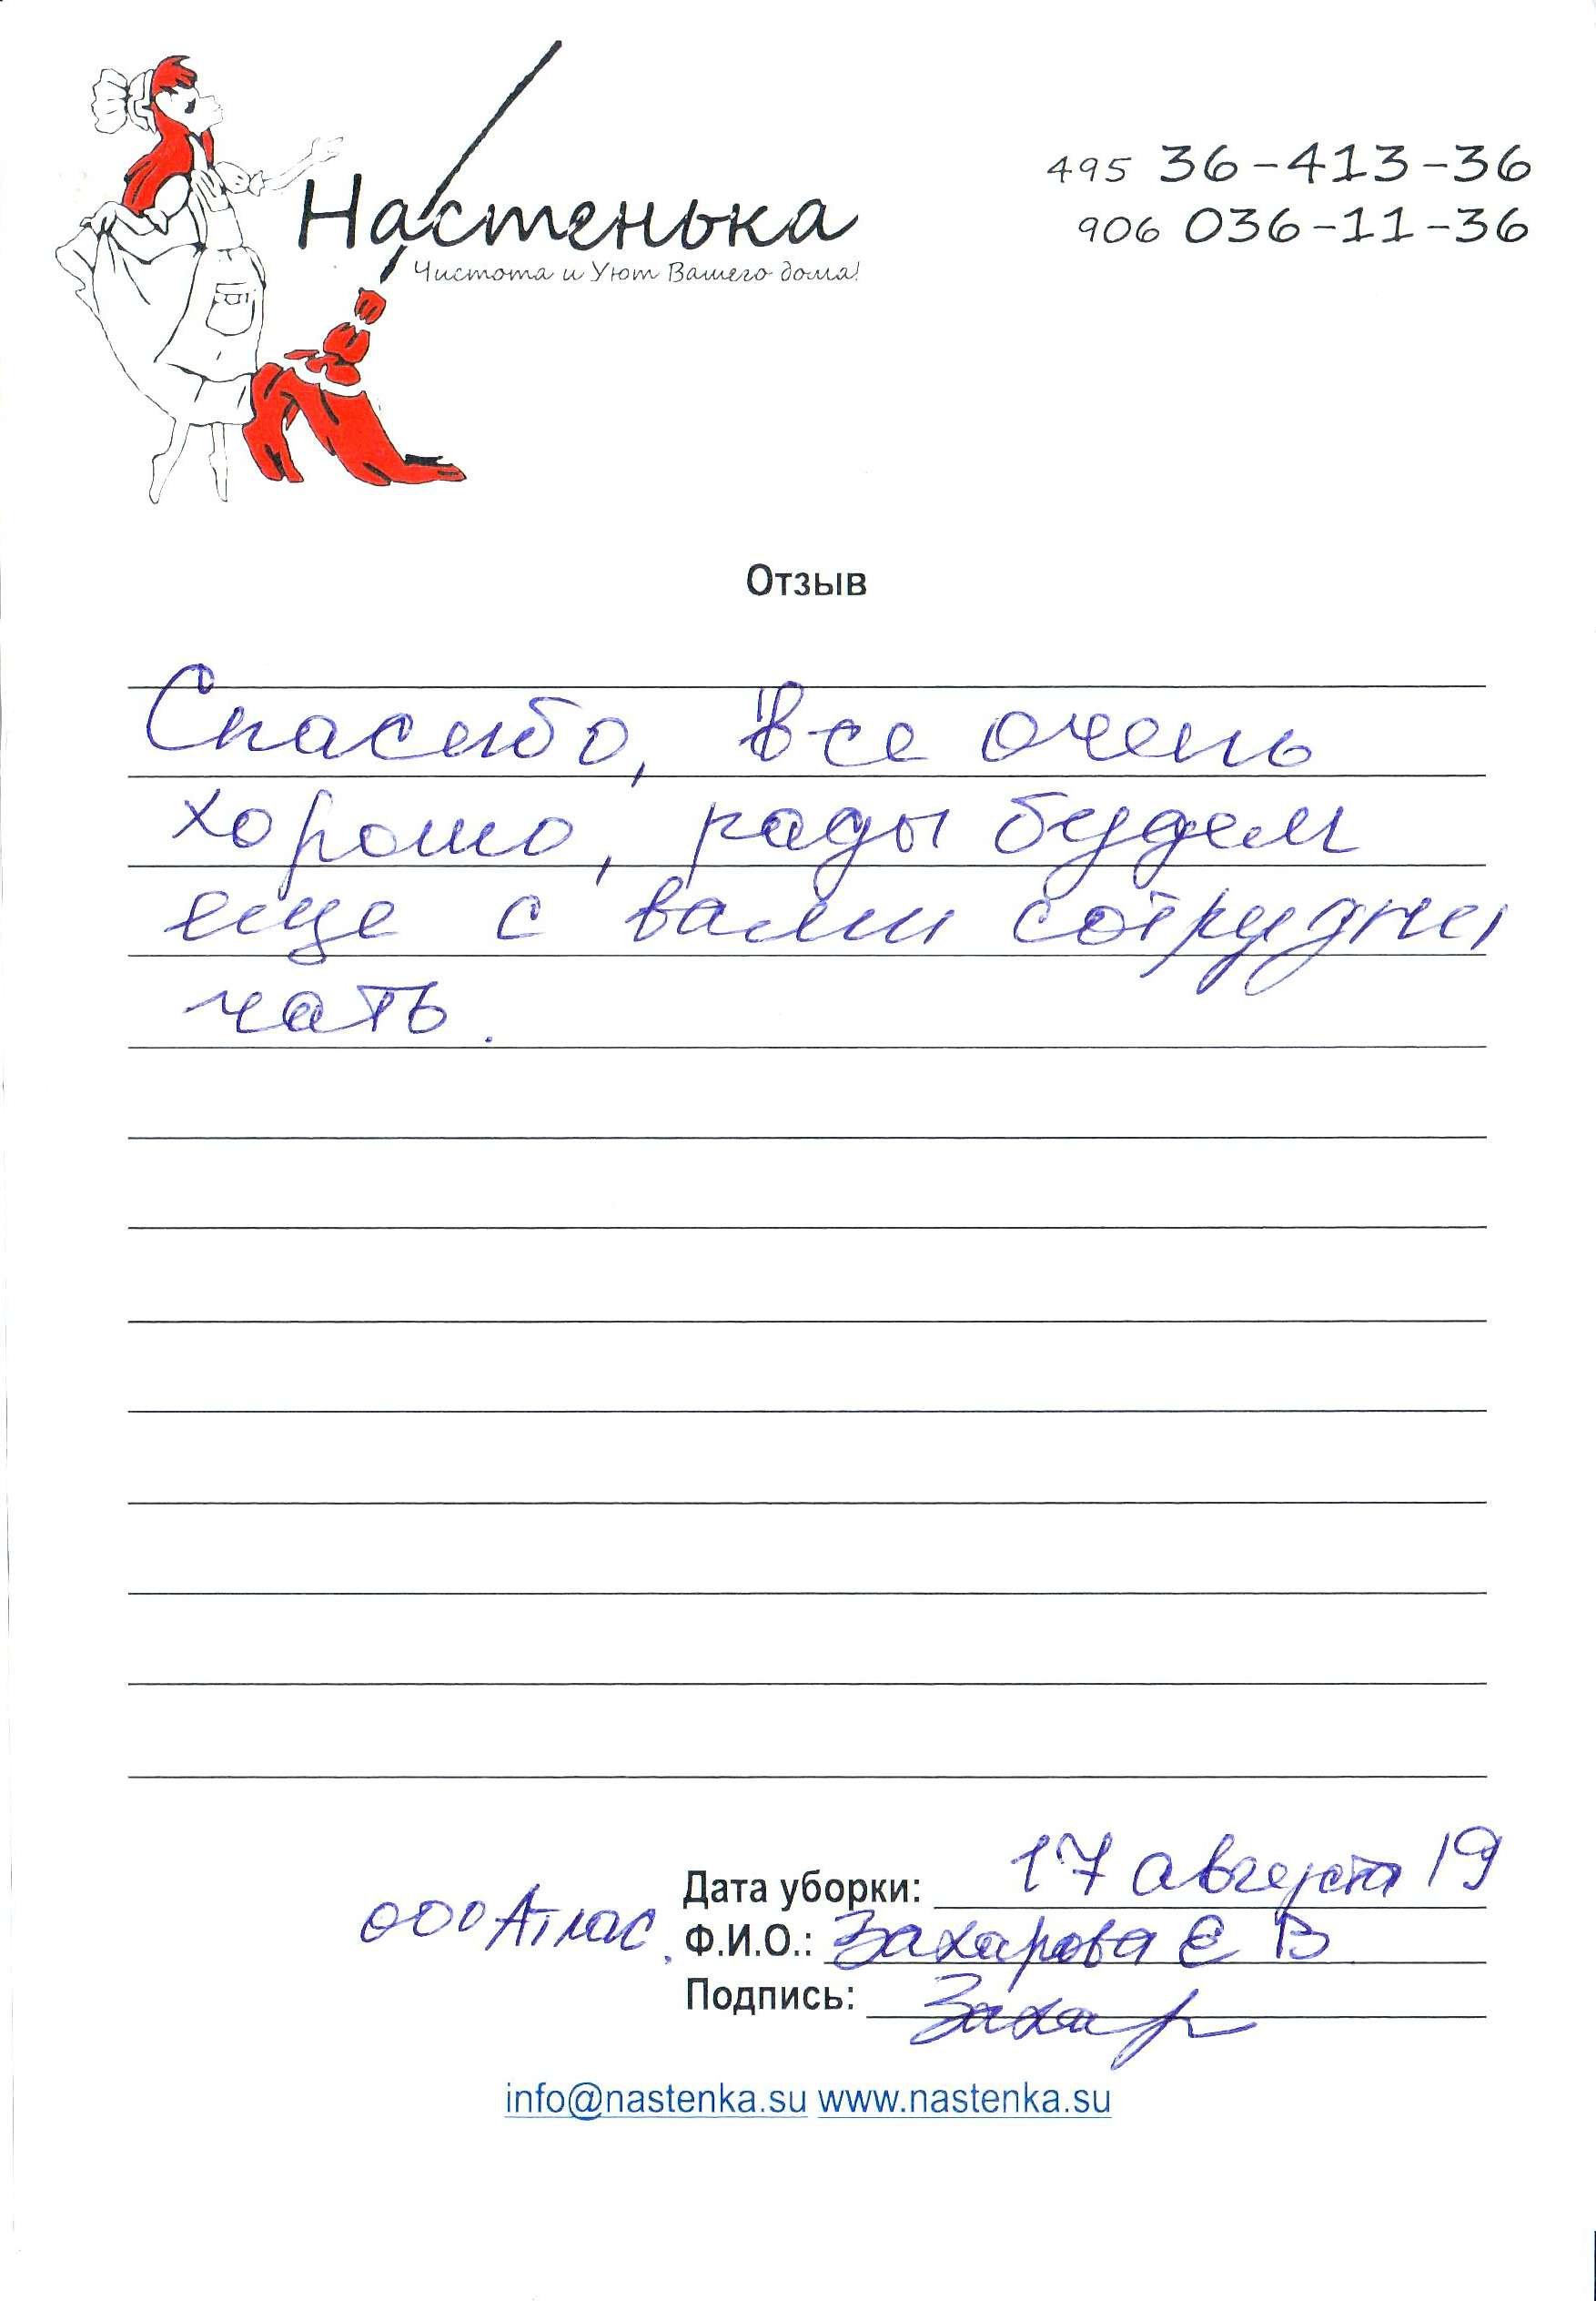 Настенька
Чистота и Уют Вашего дома!
495 36-413-36
906 036-11-36
Отзыв
Спасибо, все очень
хорошо, рады будем
еще с вами сотрудни
чать.
Дата уборки: 17 августа 19
ООО Атлас. Ф.И.О.: Захарова Е В
Подпись: Захар
info@nastenka.su www.nastenka.su